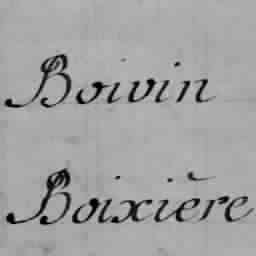 Boivin
Boixière